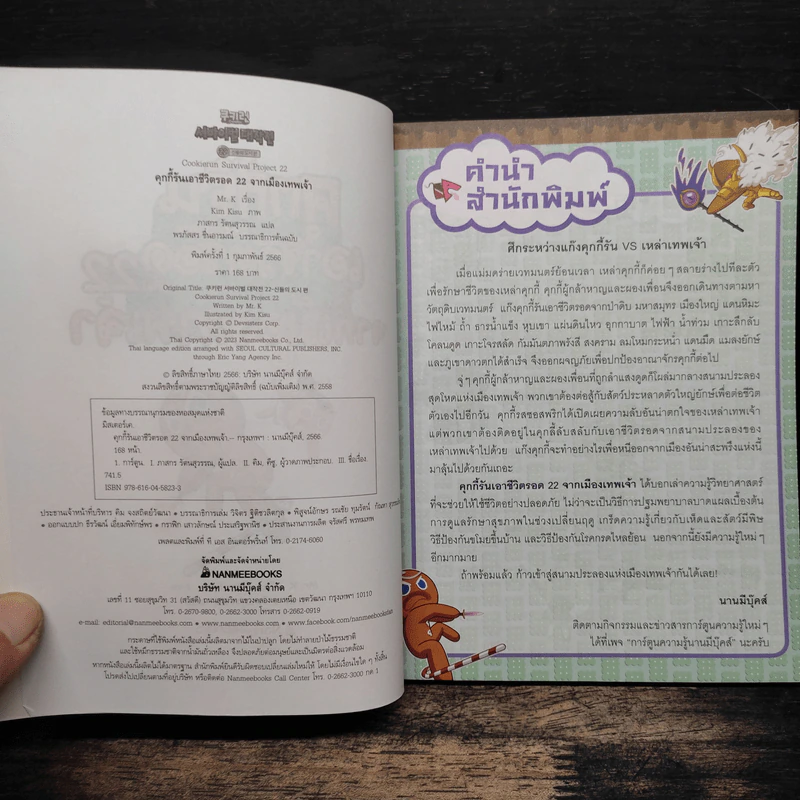 쿠키런
서바이벌 대작전
Cookierun Survival Project 22
คุกกี้รันเอาชีวิตรอด 22 จากเมืองเทพเจ้า
Mr. K เรื่อง
Kim Kisu ภาพ
ภาสกร รัตนสุวรรณ แปล
พรภัสสร ชื่นอารมณ์ บรรณาธิการต้นฉบับ
พิมพ์ครั้งที่ 1 กุมภาพันธ์ 2566
ราคา 168 บาท
Original Title: 쿠키런 서바이벌 대작전 22-신들의 도시 편
Cookierun Survival Project 22
Written by Mr. K
Illustrated by Kim Kisu
Copyright © Devsisters Corp.
All rights reserved
Thai Copyright © 2023 Nanmeebooks Co., Ltd.
Thai language edition arranged with SEOUL CULTURAL PUBLISHERS, INC.
through Eric Yang Agency Inc.
© ลิขสิทธิ์ภาษาไทย 2566: บริษัท นานมีบุ๊คส์ จำกัด
สงวนลิขสิทธิ์ตามพระราชบัญญัติลิขสิทธิ์ (ฉบับเพิ่มเติม) พ.ศ. 2558
ข้อมูลทางบรรณานุกรมของหอสมุดแห่งชาติ
มิสเตอร์เค.
คุกกี้รันเอาชีวิตรอด 22 จากเมืองเทพเจ้า.-- กรุงเทพฯ : นานมีบุ๊คส์, 2566.
168 หน้า.
1. การ์ตูน. I. ภาสกร รัตนสุวรรณ, ผู้แปล. II. คิม, คีซู, ผู้วาดภาพประกอบ. III. ชื่อเรื่อง.
741.5
ISBN 978-616-04-5823-3
ประธานเจ้าหน้าที่บริหาร คิม จงสถิตย์วัฒนา • บรรณาธิการเล่ม วิจิตร ฐิติชวลิตกุล • พิสูจน์อักษร รณชัย ทุมรัตน์
• ออกแบบปก ธีรวัฒน์ เอี่ยมพิทักษ์พร • กราฟิก เสาวลักษณ์ ประเสริฐพานิช • ประสานงานการผลิต จรัสศรี พรหมเทพ
เพลตและพิมพ์ที่ ที เอส อินเตอร์พริ้นท์ โทร. 0-2174-6060
จัดพิมพ์และจัดจำหน่ายโดย
NANMEEBOOKS
บริษัท นานมีบุ๊คส์ จำกัด
เลขที่ 11 ซอยสุขุมวิท 31 (สวัสดี) ถนนสุขุมวิท แขวงคลองเตยเหนือ เขตวัฒนา กรุงเทพฯ 10110
โทร. 0-2670-9800, 0-2662-3000 โทรสาร 0-2662-0919
e-mail: editorial@nanmeebooks.com • www.nanmeebooks.com • www.facebook.com/nanmeebooksfan
กระดาษที่ใช้พิมพ์หนังสือเล่มนี้ผลิตมาจากไม้ในป่าปลูก โดยไม่ทำลายป่าไม้ธรรมชาติ
และใช้หมึกธรรมชาติจากน้ำมันถั่วเหลือง จึงปลอดภัยต่อมนุษย์และเป็นมิตรต่อสิ่งแวดล้อม
หากหนังสือเล่มนี้ผลิตไม่ได้มาตรฐาน สำนักพิมพ์ยินดีรับผิดชอบเปลี่ยนเล่มใหม่ให้ โดยไม่มีเงื่อนไขใด ๆ ทั้งสิ้น
โปรดส่งไปเปลี่ยนตามที่อยู่บริษัท หรือติดต่อ Nanmeebooks Call Center โทร. 0-2662-3000 กด 1
คำนำ
สำนักพิมพ์
ศึกระหว่างแก๊งคุกกี้รัน VS เหล่าเทพเจ้า
เมื่อแม่มดร่ายเวทมนตร์ย้อนเวลา เหล่าคุกกี้ก็ค่อย ๆ สลายร่างไปทีละตัว
เพื่อรักษาชีวิตของเหล่าคุกกี้ คุกกี้ผู้กล้าหาญและผองเพื่อนจึงออกเดินทางตามหา
วัตถุดิบเวทมนตร์ แก๊งคุกกี้รันเอาชีวิตรอดจากป่าดิบ มหาสมุทร เมืองใหญ่ แดนหิมะ
ไฟไหม้ ถ้ำ ธารน้ำแข็ง หุบเขา แผ่นดินไหว อุกกาบาต ไฟฟ้า น้ำท่วม เกาะลึกลับ
โคลนดูด เกาะโจรสลัด กัมมันตภาพรังสี สงคราม ลมโหมกระหน่ำ แดนมืด แมลงยักษ์
และภูเขาดาวตกได้สำเร็จ จึงออกผจญภัยเพื่อปกป้องอาณาจักรคุกกี้ต่อไป
จู่ ๆ คุกกี้ผู้กล้าหาญและผองเพื่อนที่ถูกลำแสงดูดก็โผล่มากลางสนามประลอง
สุดโหดแห่งเมืองเทพเจ้า พวกเขาต้องต่อสู้กับสัตว์ประหลาดตัวใหญ่ยักษ์เพื่อต่อชีวิต
ตัวเองไปอีกวัน คุกกี้รสซอสพริกได้เปิดเผยความลับอันน่าตกใจของเหล่าเทพเจ้า
แต่พวกเขาต้องติดอยู่ในคุกกี้ลับสลับกับเอาชีวิตรอดจากสนามประลองของ
เหล่าเทพเจ้าไปด้วย แก๊งคุกกี้จะทำอย่างไรเพื่อหนีออกจากเมืองอันน่าสะพรึงแห่งนี้
มาลุ้นไปด้วยกันเถอะ
คุกกี้รันเอาชีวิตรอด 22 จากเมืองเทพเจ้า ได้บอกเล่าความรู้วิทยาศาสตร์
ที่จะช่วยให้ใช้ชีวิตอย่างปลอดภัย ไม่ว่าจะเป็นวิธีการปฐมพยาบาลบาดแผลเบื้องต้น
การดูแลรักษาสุขภาพในช่วงเปลี่ยนฤดู เกร็ดความรู้เกี่ยวกับเห็ดและสัตว์มีพิษ
วิธีป้องกันขโมยขึ้นบ้าน และวิธีป้องกันโรคกรดไหลย้อน นอกจากนี้ยังมีความรู้ใหม่ ๆ
อีกมากมาย
ถ้าพร้อมแล้ว ก้าวเข้าสู่สนามประลองแห่งเมืองเทพเจ้ากันได้เลย!
นานมีบุ๊คส์
ติดตามกิจกรรมและข่าวสารการ์ตูนความรู้ใหม่ ๆ
ได้ที่เพจ "การ์ตูนความรู้นานมีบุ๊คส์" นะครับ